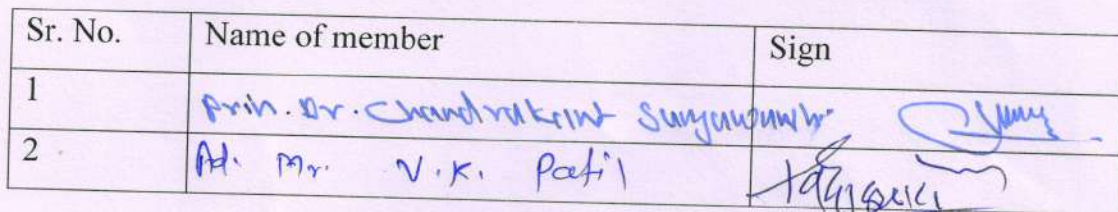 Sr. No. Name of member Sign
1 Prin. Dr. Chandrakant Suryawanshi
2 Ad. Mr. V.K. Patil